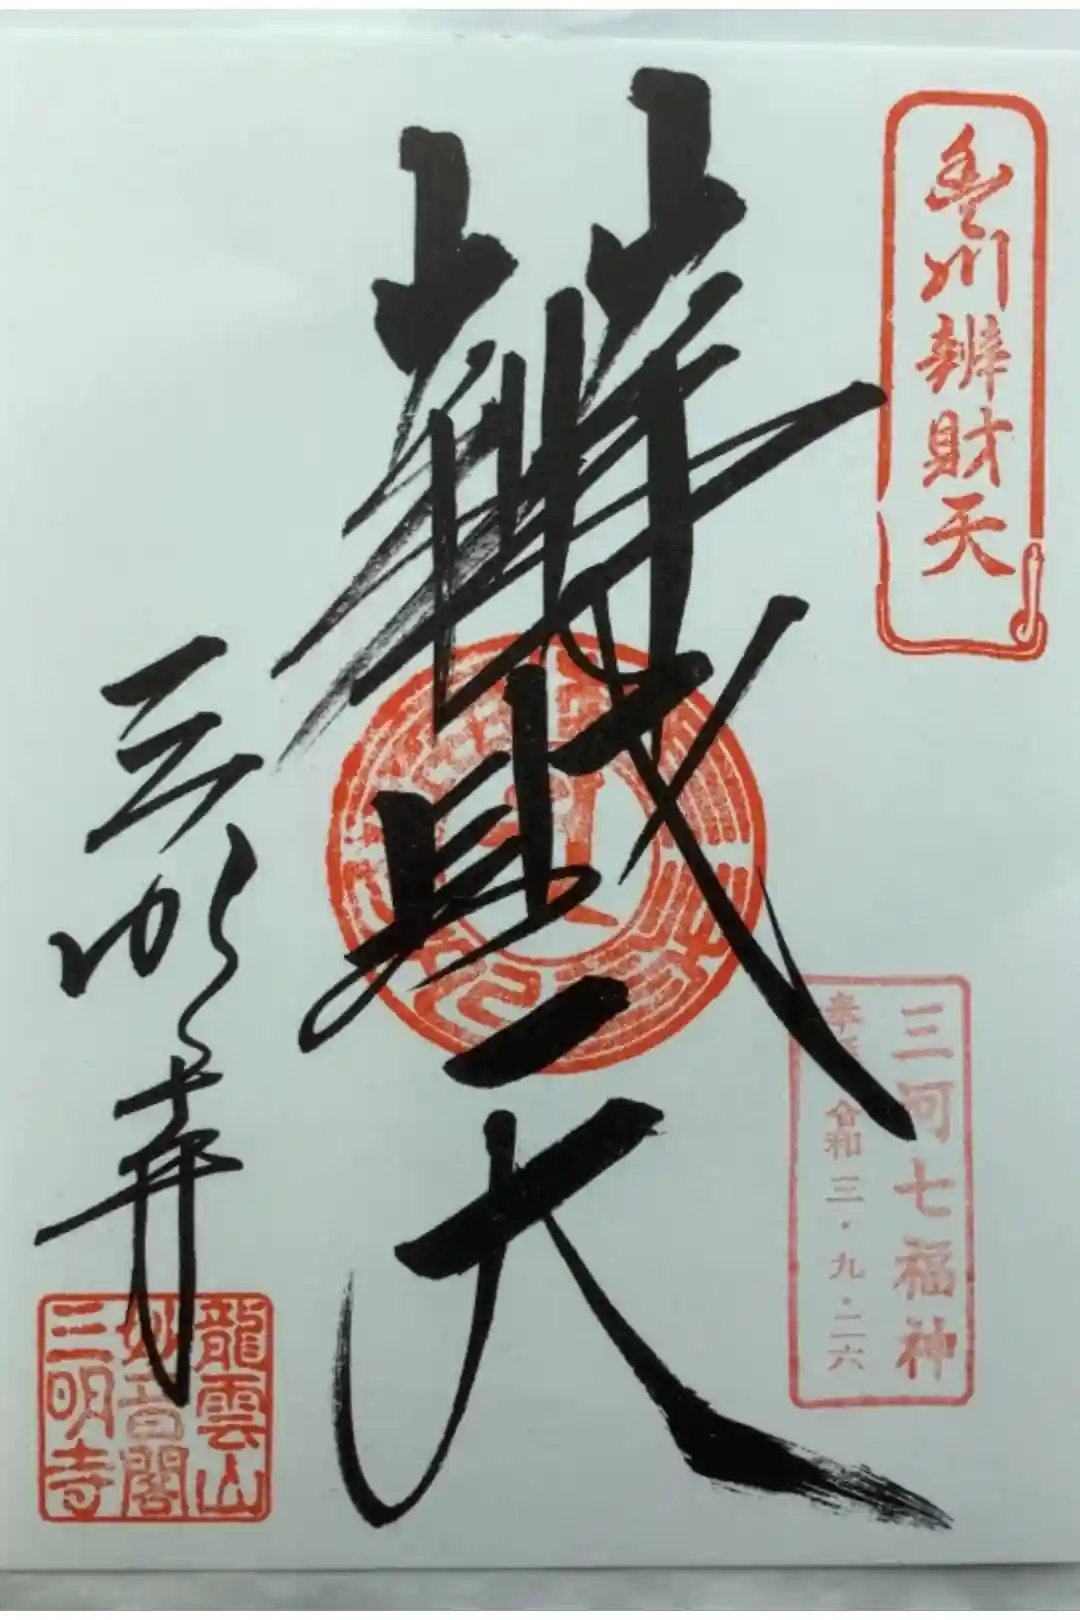 豊川辨財天
三河七福神
奉拝 令和三・九・二六
辨財天
三明寺
龍雲山
妙音閣
三明寺